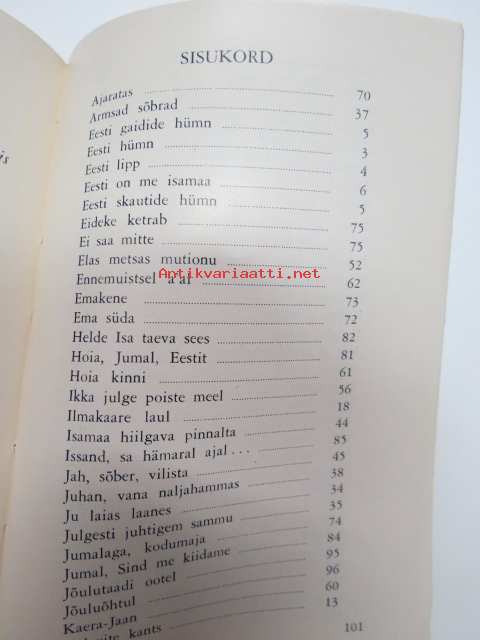 SISUKORD
Ajaratas 70
Armsad sõbrad 37
Eesti gaidide hümn 5
Eesti hümn 3
Eesti lipp 4
Eesti on me isamaa 6
Eesti skautide hümn 5
Eideke ketrab 75
Ei saa mitte 75
Elas metsas mutionu 52
Antikvariaatti.net
Ennemuistsel a'al 62
Emakene 73
Ema süda 72
Helde Isa taeva sees 82
Hoia, Jumal, Eestit 81
Hoia kinni 61
Ikka julge poiste meel 56
Ilmakaare laul 18
Isamaa hiilgava pinnalta 44
Issand, sa hämaral ajal... 85
Jah, sõber, vilista 45
Juhan, vana naljahammas 38
Ju laias laanes 34
Julgesti juhtigem sammu 35
Jumalaga, kodumaja 74
Jumal, Sind me kiidame 84
Jõulutaadi ootel 95
Jõuluõhtul 96
Kaera-Jaan 60
kants 13
101